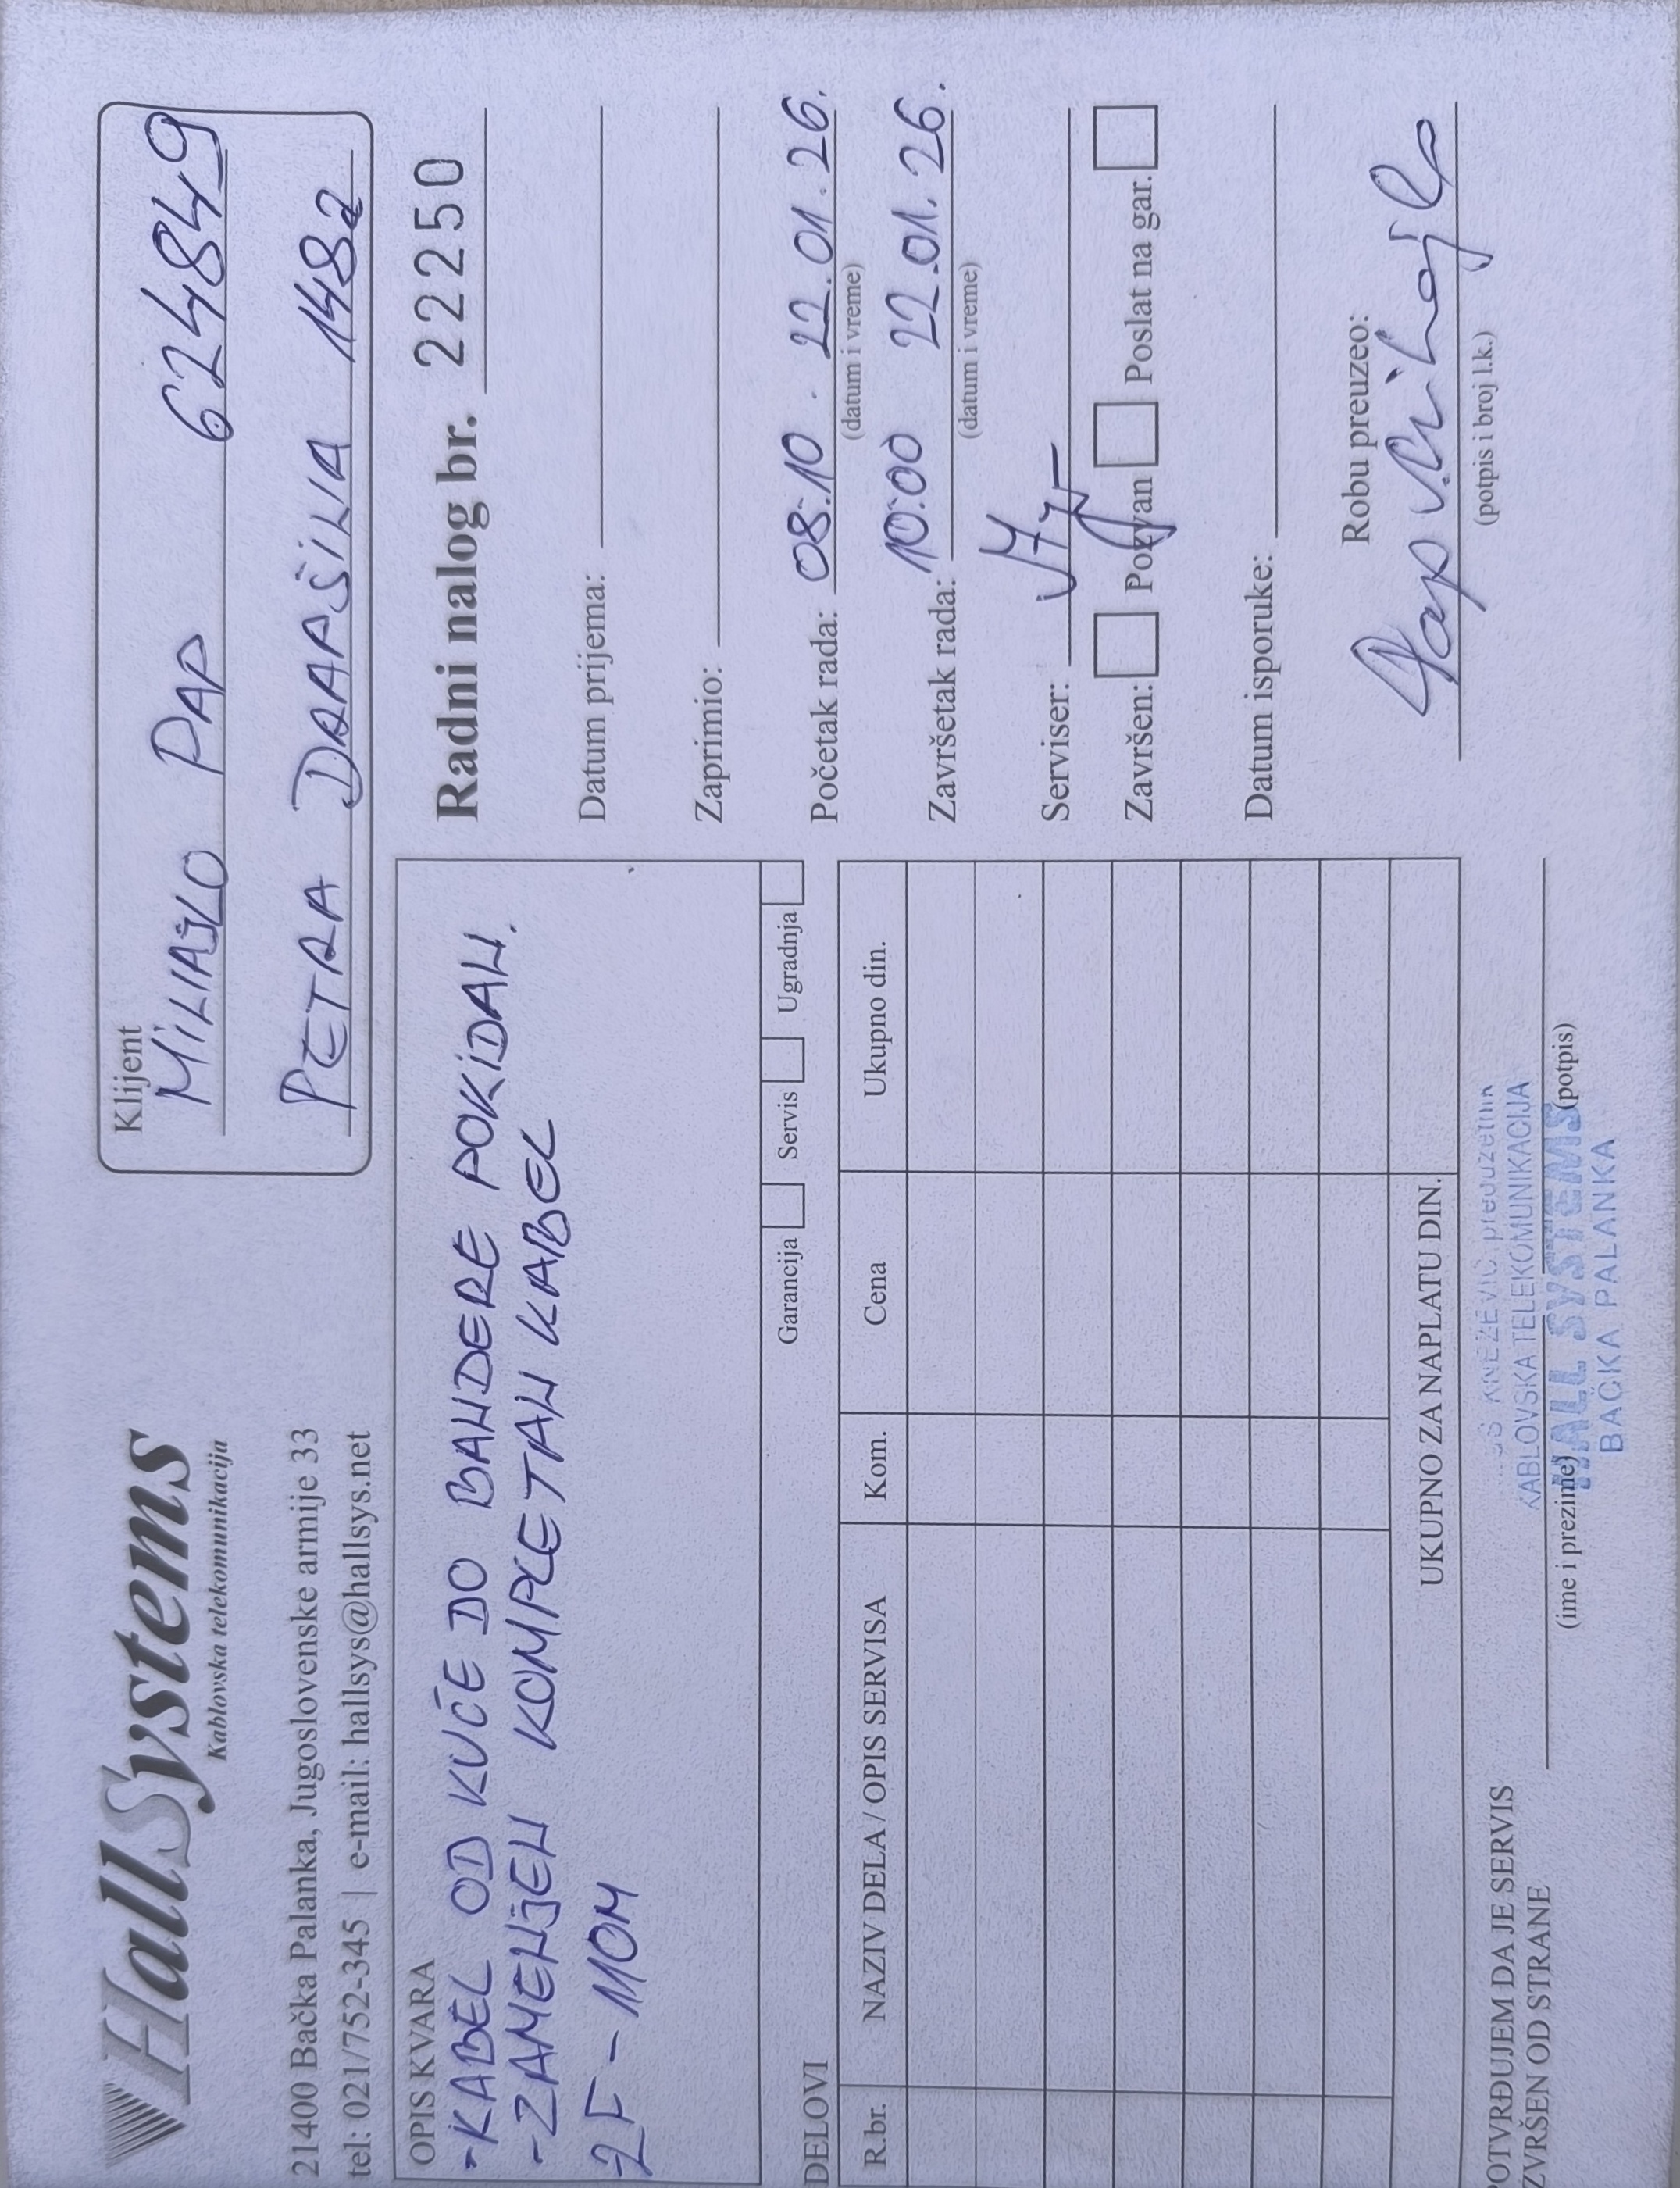 HallSystems
Kablovska telekomunikacija
21400 Bačka Palanka, Jugoslovenske armije 33
tel: 021/752-345 | e-mail: hallsys@hallsys.net
Klijent
MILIAJLO PAP 624849
PETRA DRAPŠINA 148a
OPIS KVARA
-KABEL OD KUĆE DO BANDERE POKIDAN.
-ZAMENJEN KOMPLETAN KABEL
-2F - 110M
Garancija Servis Ugradnja
Radni nalog br. 22250
Datum prijema:
Zaprimio:
Početak rada: 08:10 . 22.01.26.
(datum i vreme)
Završetak rada: 10:00 22.01.26.
(datum i vreme)
Serviser:
Završen: Pozvan Poslat na gar.
Datum isporuke:
Robu preuzeo:
Pap Mihajlo
(potpis i broj l.k.)
DELOVI
R.br. NAZIV DELA / OPIS SERVISA Kom. Cena Ukupno din.
UKUPNO ZA NAPLATU DIN.
POTVRĐUJEM DA JE SERVIS
IZVRŠEN OD STRANE
(ime i prezime) (potpis)
KNEŽEVIĆ preduzetnik
KABLOVSKA TELEKOMUNIKACIJA
HALL SYSTEMS
BAČKA PALANKA